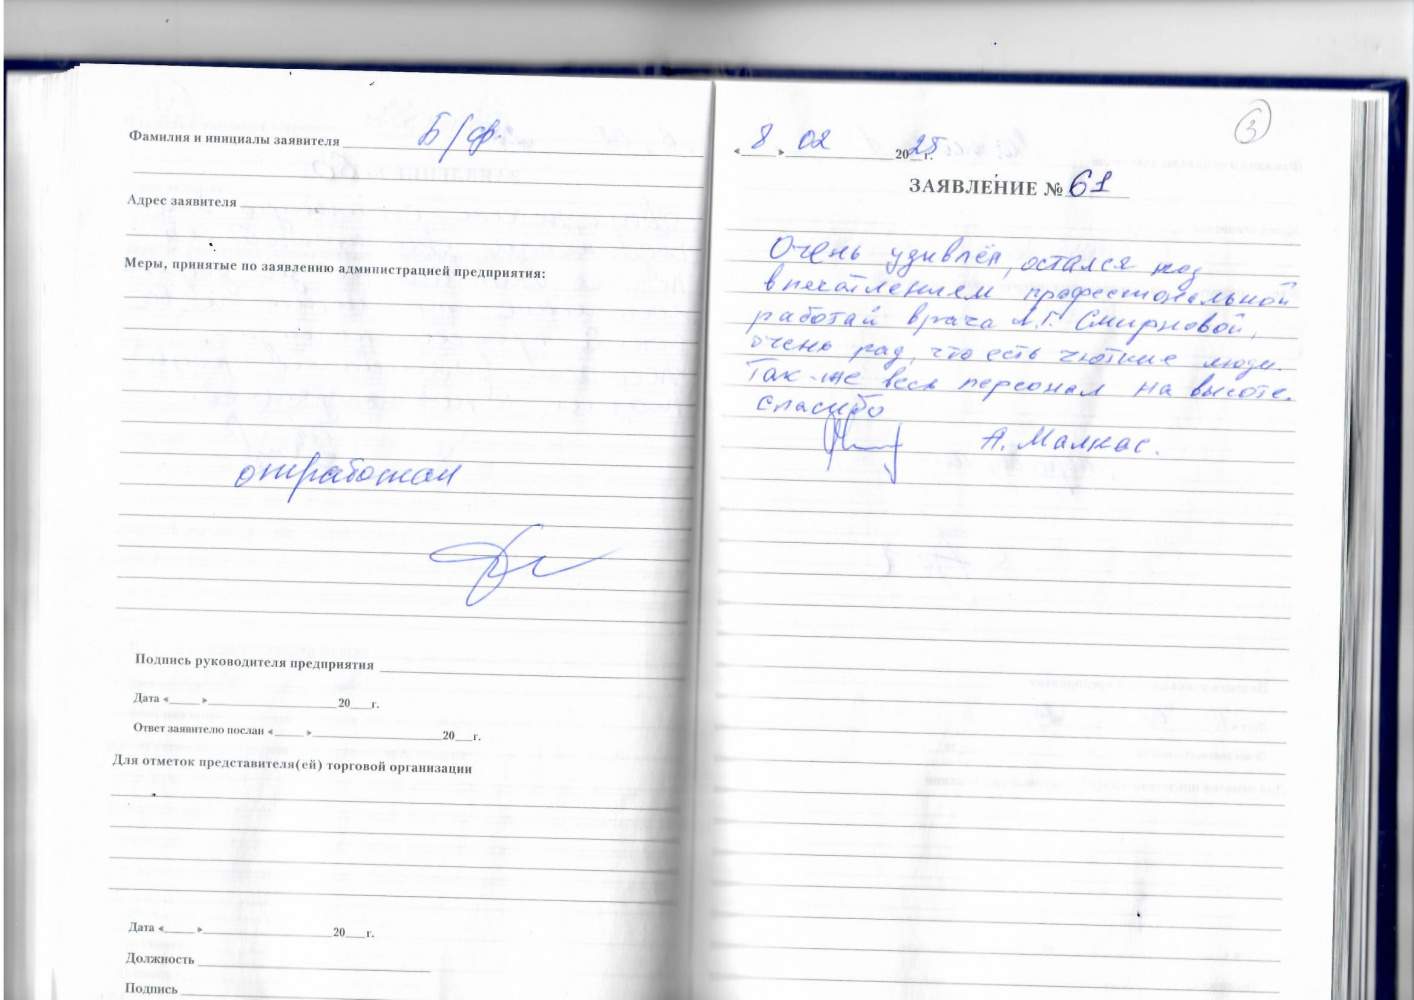 Фамилия и инициалы заявителя Б/ф.
Адрес заявителя
Меры, принятые по заявлению администрацией предприятия:
отработан
Подпись руководителя предприятия
Дата «____»____20__г.
Ответ заявителю послан «____»____20__г.
Для отметок представителя(ей) торговой организации
Дата «____»____20__г.
Должность
Подпись
3
«8» 02 2025 г.
ЗАЯВЛЕНИЕ № 61
Очень удивлён, остался под
впечатлением профессиональной
работай врача Л.Г. Смирновой,
очень рад, что есть чуткие люди.
Так-же весь персонал на высоте.
спасибо
А. Малкас.